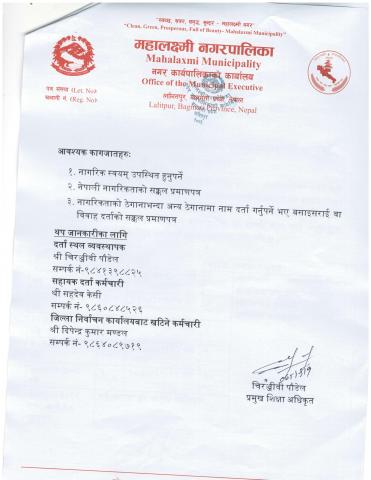 "स्वच्छ, सफा, समृद्ध सुन्दर - महालक्ष्मी नगर"
"Clean, Green, Prosperous, Full of Beauty- Mahalaxmi Municipality"
महालक्ष्मी नगरपालिका
Mahalaxmi Municipality
नगर कार्यपालिकाको कार्यालय
Office of the Municipal Executive
Lalitpur, Bagmati Province, Nepal
पत्र संख्या (Let. No)
चलानी नं. (Reg. No)
आवश्यक कागजातहरु:
१. नागरिक स्वयम् उपस्थित हुनुपर्ने
२. नेपाली नागरिकताको सक्कल प्रमाणपत्र
३. नागरिकताको ठेगानाभन्दा अन्य ठेगानामा नाम दर्ता गर्नुपर्ने भए बसाइसराई वा
विवाह दर्ताको सक्कल प्रमाणपत्र
थप जानकारीका लागि
दर्ता स्थल व्यवस्थापक
श्री चिरञ्जीवी पौडेल
सम्पर्क नं-९८४१३९८८२५
सहायक दर्ता कर्मचारी
श्री सहदेव केसी
सम्पर्क नं- ९८६०८४८५२६
जिल्ला निर्वाचन कार्यालयबाट खटिने कर्मचारी
श्री दिपेन्द्र कुमार मण्डल
सम्पर्क नं- ९८६४०८९७१९
चिरञ्जीवी पौडेल
प्रमुख शिक्षा अधिकृत